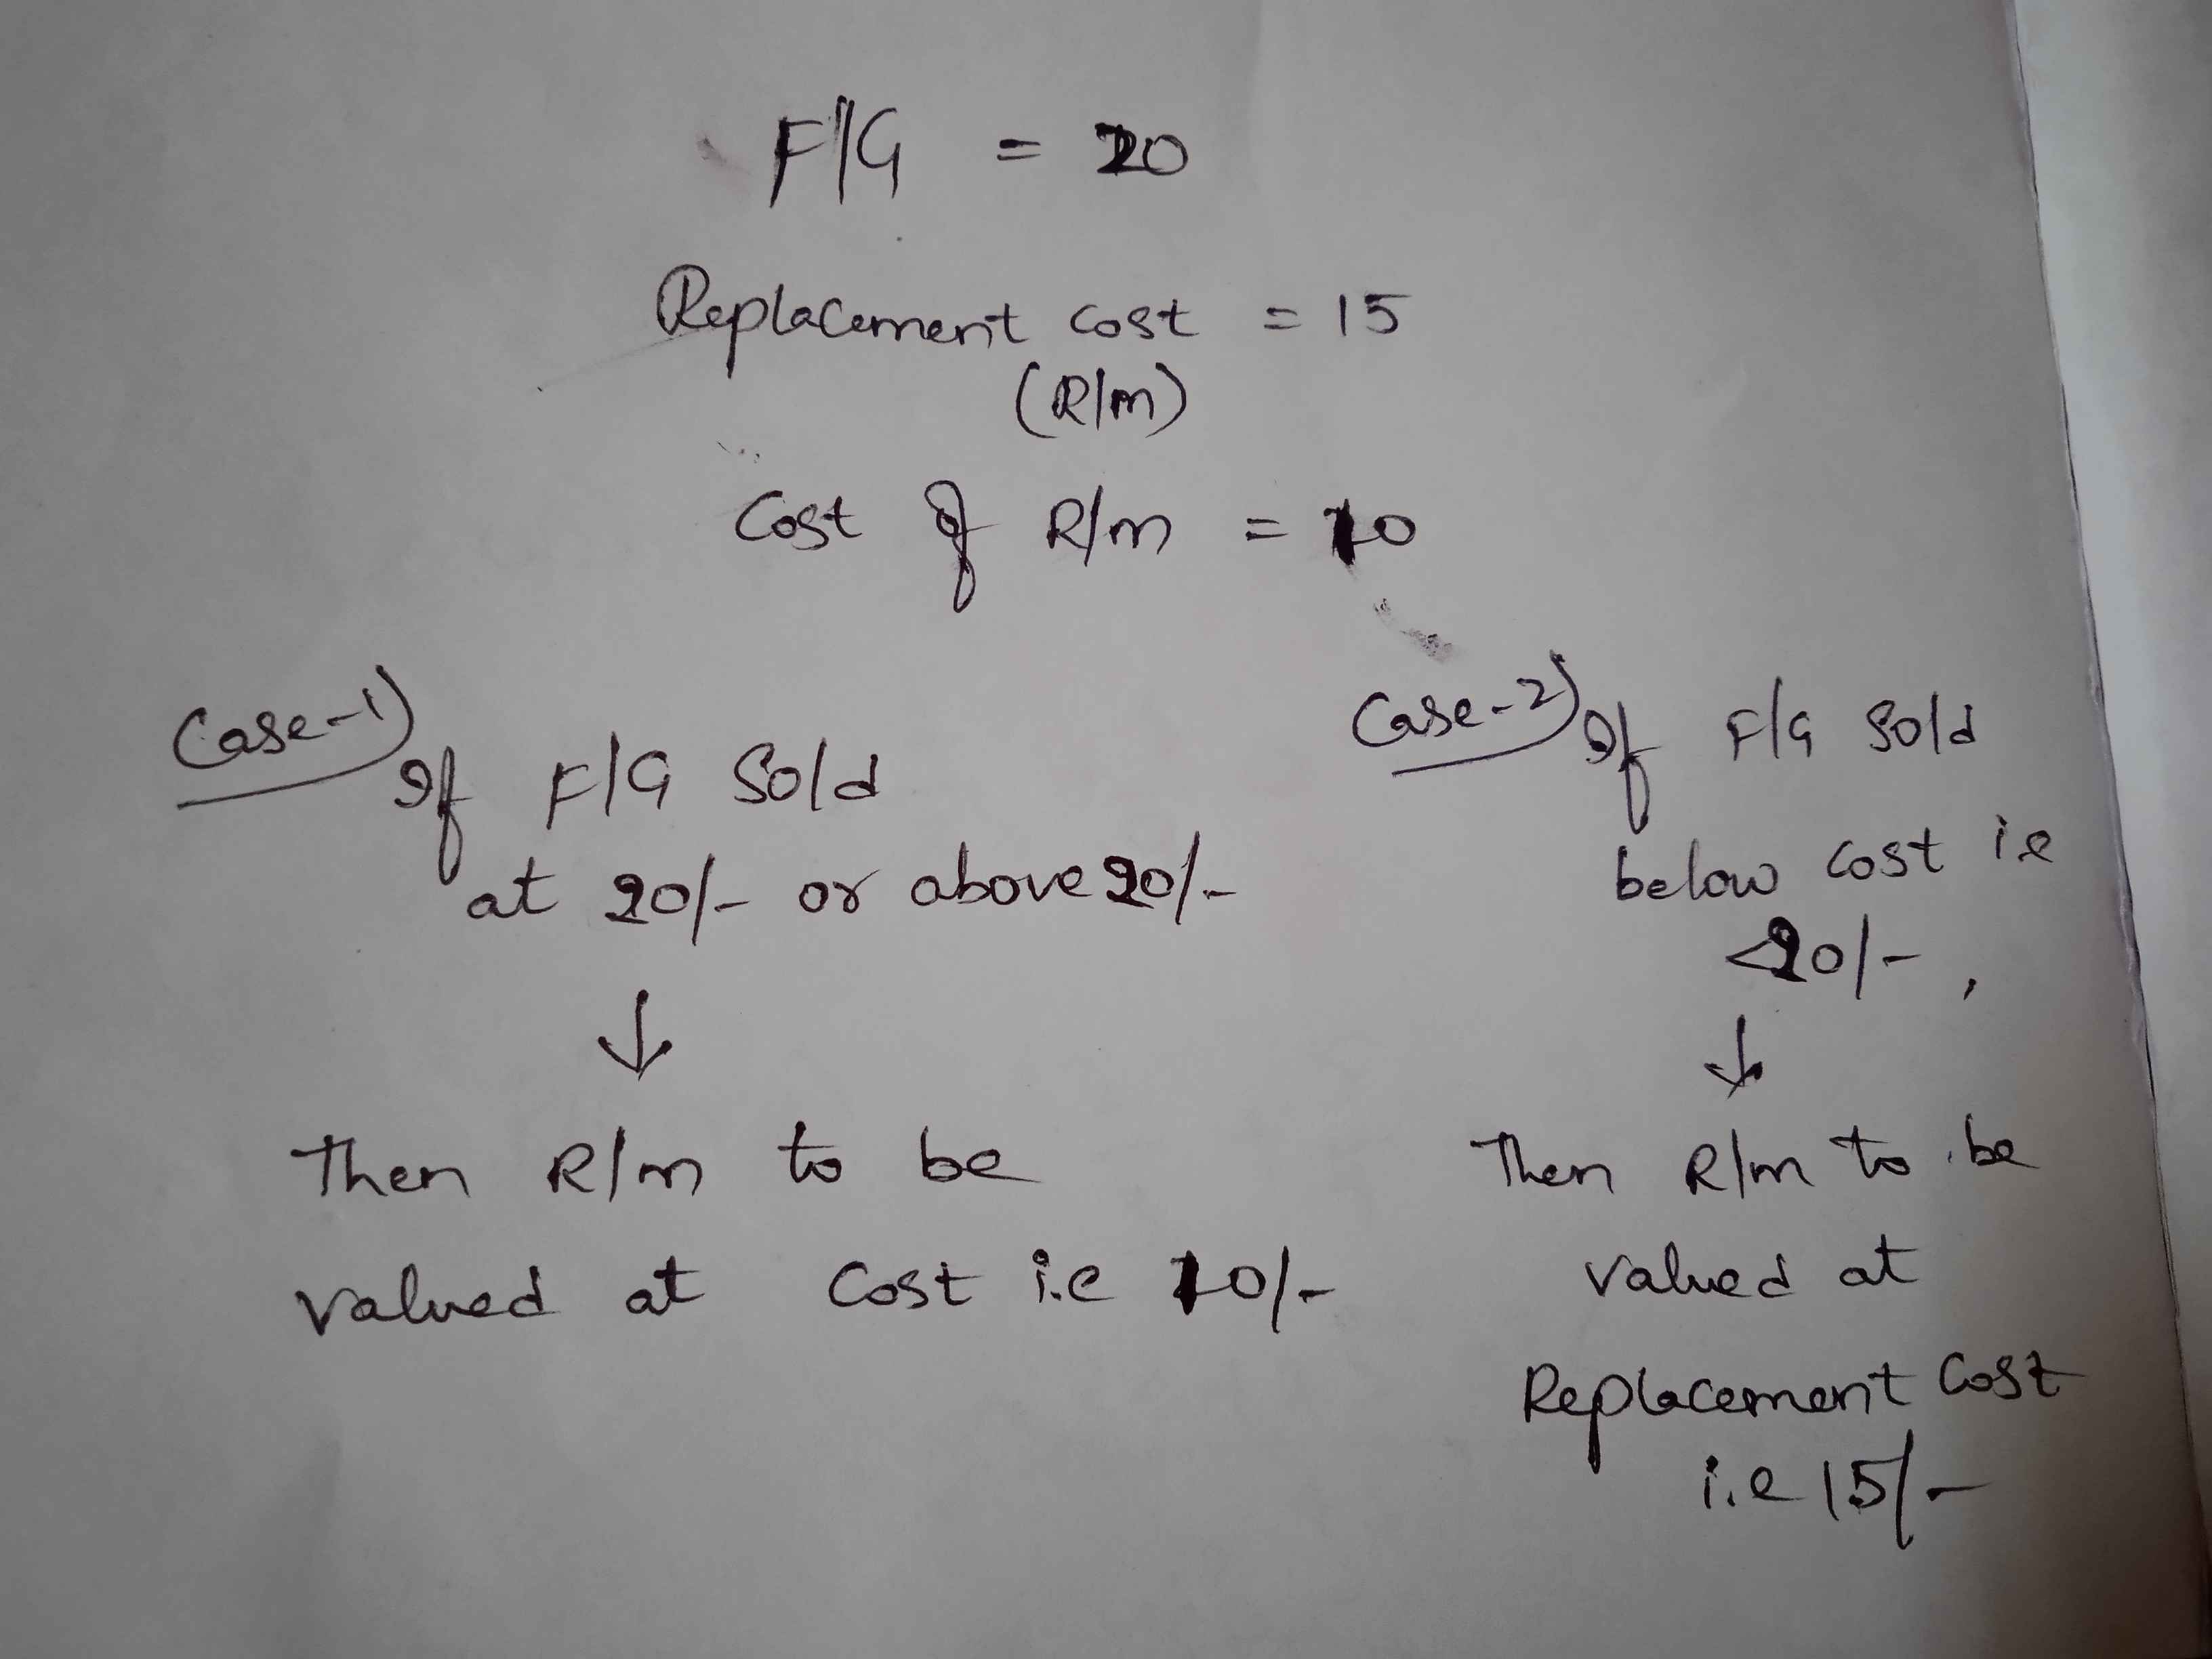 F/G = 20
Replacement cost = 15
(R/m)
Cost of R/m = 10
Case-1)
If F/G Sold
at 20/- or above 20/-
↓
Then R/m to be
valued at Cost i.e 10/-
Case-2) If F/G Sold
below cost i.e
<20/-,
↓
Then R/m to be
valued at
Replacement Cost
i.e 15/-